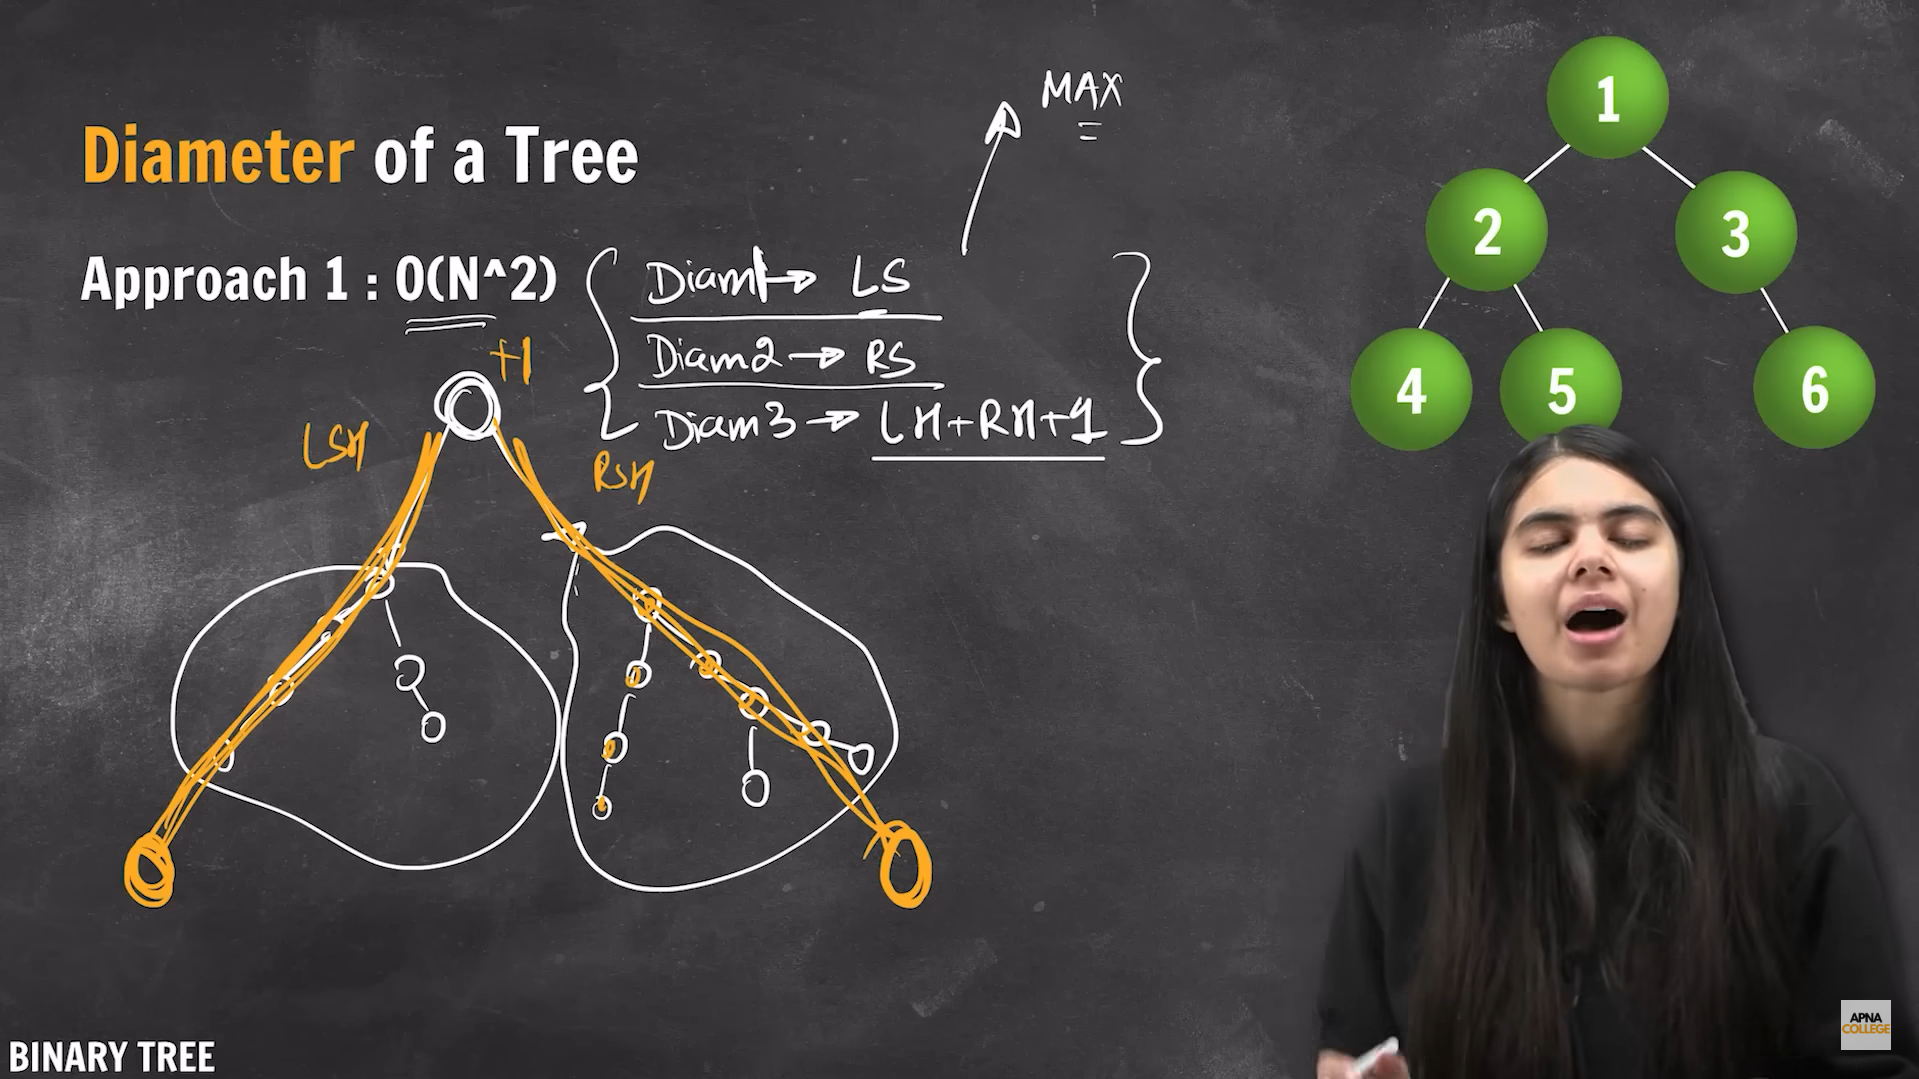 MAX
Diameter of a Tree
Approach 1 : O(N^2)
Diam1 → LS
Diam2 → RS
Diam3 → LH+RH+1
+1
LSH
RSH
1
2
3
4
5
6
BINARY TREE
APNA
COLLEGE